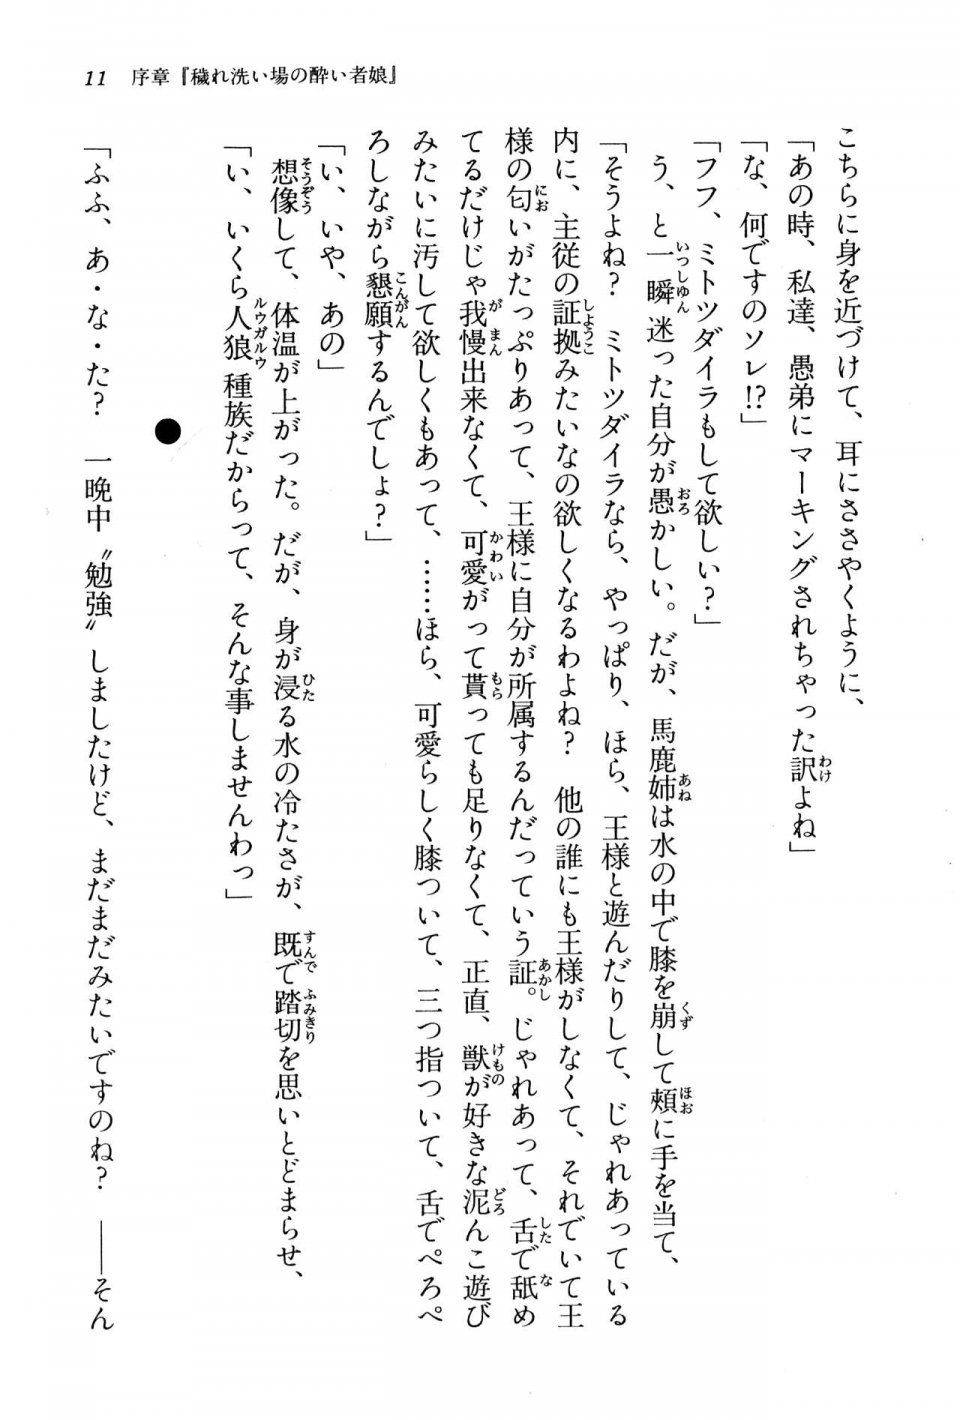 11 序章『穢れ洗い場の酔い者娘』
こちらに身を近づけて、耳にささやくように、
「あの時、私達、愚弟にマーキングされちゃった訳よね」
「な、何ですのソレ!?」
「フフ、ミトツダイラもして欲しい？」
う、と一瞬迷った自分が愚かしい。だが、馬鹿姉は水の中で膝を崩して頰に手を当て、
「そうよね？　ミトツダイラなら、やっぱり、ほら、王様と遊んだりして、じゃれあっている
内に、主従の証拠みたいなの欲しくなるわよね？　他の誰にも王様がしなくて、それでいて王
様の匂いがたっぷりあって、王様に自分が所属するんだっていう証。じゃれあって、舌で舐め
てるだけじゃ我慢出来なくて、可愛がって貰っても足りなくて、正直、獣が好きな泥んこ遊び
みたいに汚して欲しくもあって、……ほら、可愛らしく膝ついて、三つ指ついて、舌でぺろぺ
ろしながら懇願するんでしょ？」
「い、いや、あの」
想像して、体温が上がった。だが、身が浸る水の冷たさが、既で踏切を思いとどまらせ、
「い、いくら人狼種族だからって、そんな事しませんわっ」
●
「ふふ、あ・な・た？　一晩中〝勉強〟しましたけど、まだまだみたいですのね？　――そん